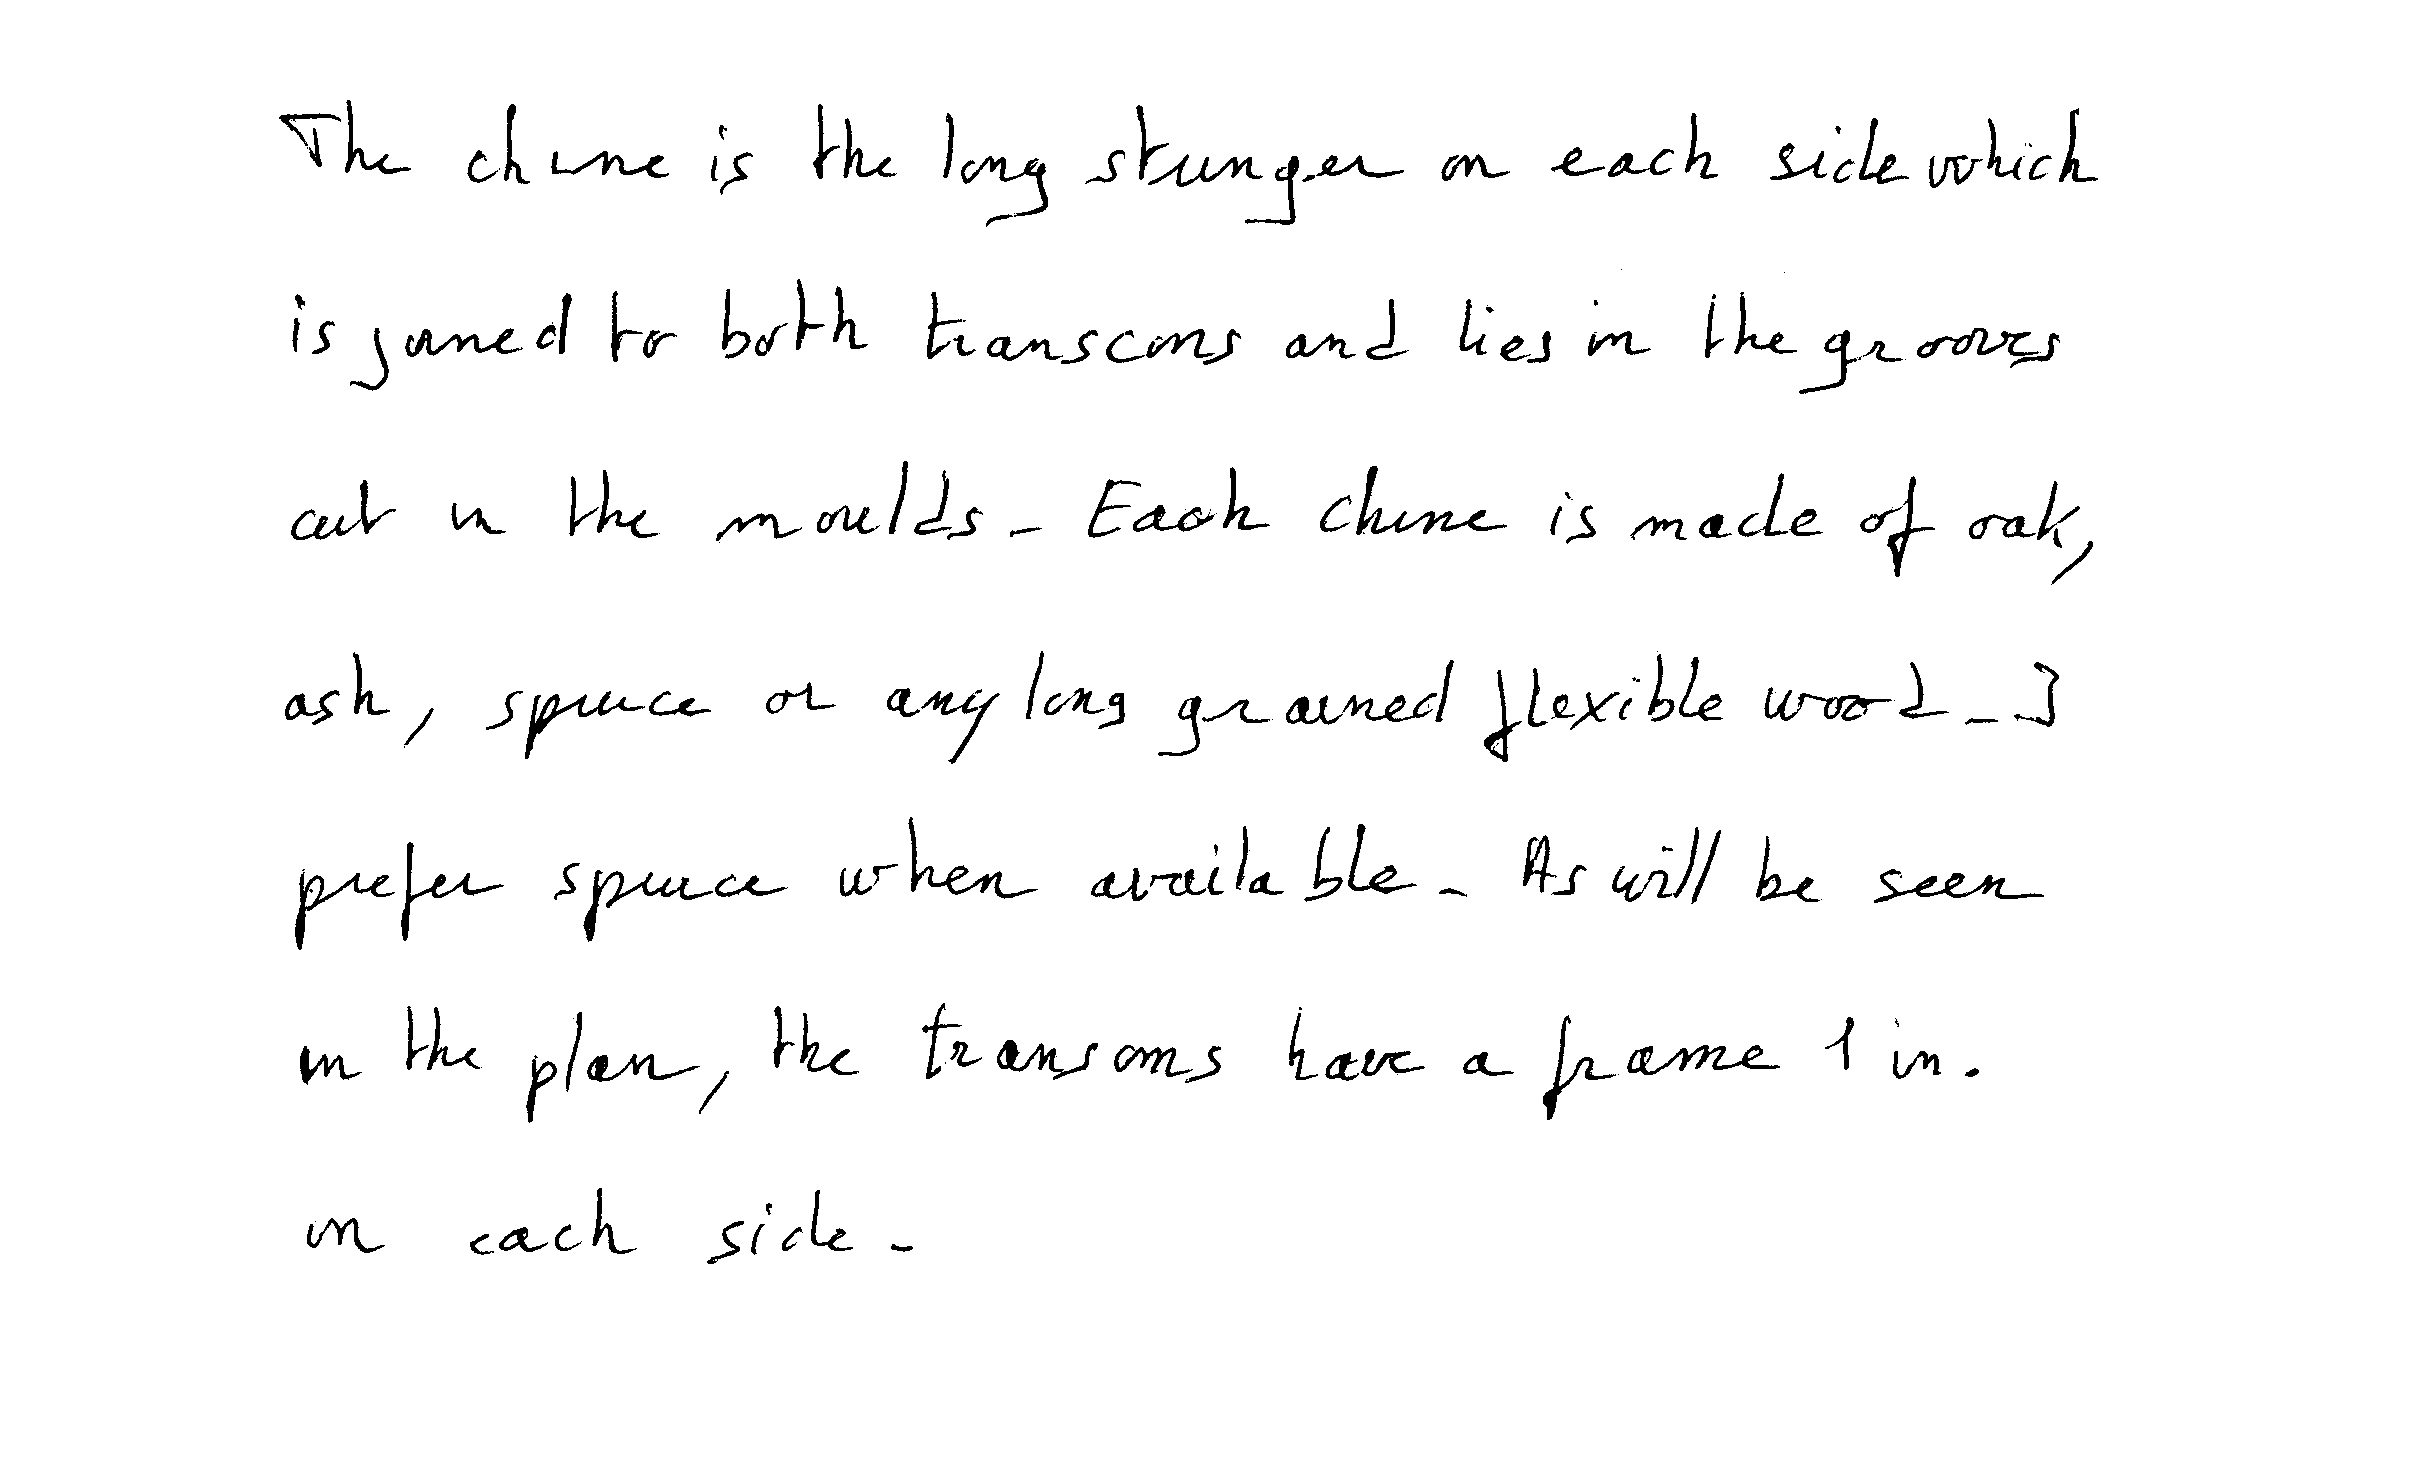 The chine is the long stringer on each side which
is joined to both transcoms and lies in the grooves
cut in the moulds. Each chine is made of oak,
ash, spruce or any long grained flexible wood. I
prefer spruce when available. As will be seen
in the plan, the transoms have a frame 1 in.
on each side.